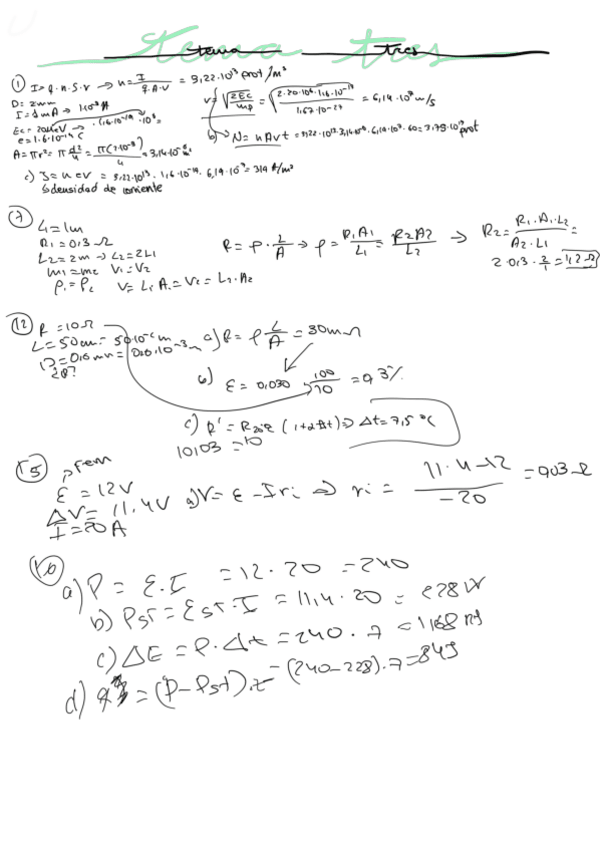 tema tres
tema tres
① I = q·n·S·v → n = I / q·A·v = 9,22·10¹³ prot/m³
D: 2mm
I = 1mA → 1·10⁻³ A
Ec = 20MeV → ·1,6·10⁻¹⁹·10⁶
e = 1.6·10⁻¹⁹ C
v = √(2Ec / mp) = √(2·20·10⁶·1,6·10⁻¹⁹ / 1,67·10⁻²⁷) = 6,19·10⁷ m/s
A = πr² = π d²/4 = π(2·10⁻³)²/4 = 3,14·10⁻⁶
b) N = nAvt = 9,22·10¹³·3,14·10⁻⁶·6,19·10⁷·60 = 3.75·10¹⁷ prot
c) J = nev = 9,22·10¹³·1,6·10⁻¹⁹·6,19·10⁷ = 319 A/m²
↳ densidad de corriente
⑦
L₁ = 1m
R₁ = 0,3 Ω
L₂ = 2m → L₂ = 2L1
m₁ = m₂ V₁ = V₂
ρ₁ = ρ₂ V = L₁·A₁ = V₂ = L₂·A₂
R = ρ·L/A → ρ = R₁A₁/L₁ = R₂A₂/L₂ → R₂ = R₁·A₁·L₂ / A₂·L₁ =
2·0,3·2/1 = 1,2 Ω
⑫ R = 10Ω
L = 50cm = 50·10⁻² m
D = 0,6mm = 0,6·10⁻³ m
20º
a) R = ρ L/A = 30mΩ
b) ε = 0,030 · 100/10 = 0,3%
c) R' = R20º (1+αΔt) ⇒ Δt = 7,5 ºC
10,03 = 10
⑮
fem
ε = 12V
ΔV = 11,4V a) V = ε - I·ri ⇒ ri = 11.4-12 / -20 = 0,03 Ω
I = 20 A
⑯
a) P = ε·I = 12·20 = 240
b) Pst = εst·I = 11,4·20 = 228 W
c) ΔE = P·Δt = 240·7 = 1,68 kJ
d) = (P-Pst)·t = (240-228)·7 = 84J